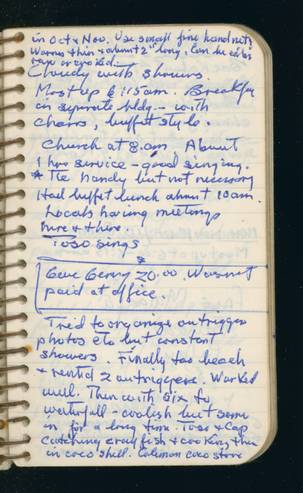 in Oct & Nov. Use small fine hand nets
Worms thin & about 2" long, Can be eaten
raw or cooked.
Cloudy with showers.
Most up 6:15am. Breakfas
in separate bldg. - with
chairs, buffet style.
Church at 8.am About
1 hr service - good singing.
* Tie handy but not necessary
Had buffet lunch about 10am.
Locals having meetings
here & there.
Toso sings
*
Gave Gerry 20.00 Was not
paid at office.
Tried to organize outrigger
photos etc but constant
showers. Finally to beach
& rented 2 outriggers. Worked
well. Then with six to
waterfall - coolish but swam
in for a long time. Toso & Cap
catching crayfish & cooking them
in coco shell. Coleman coco stove